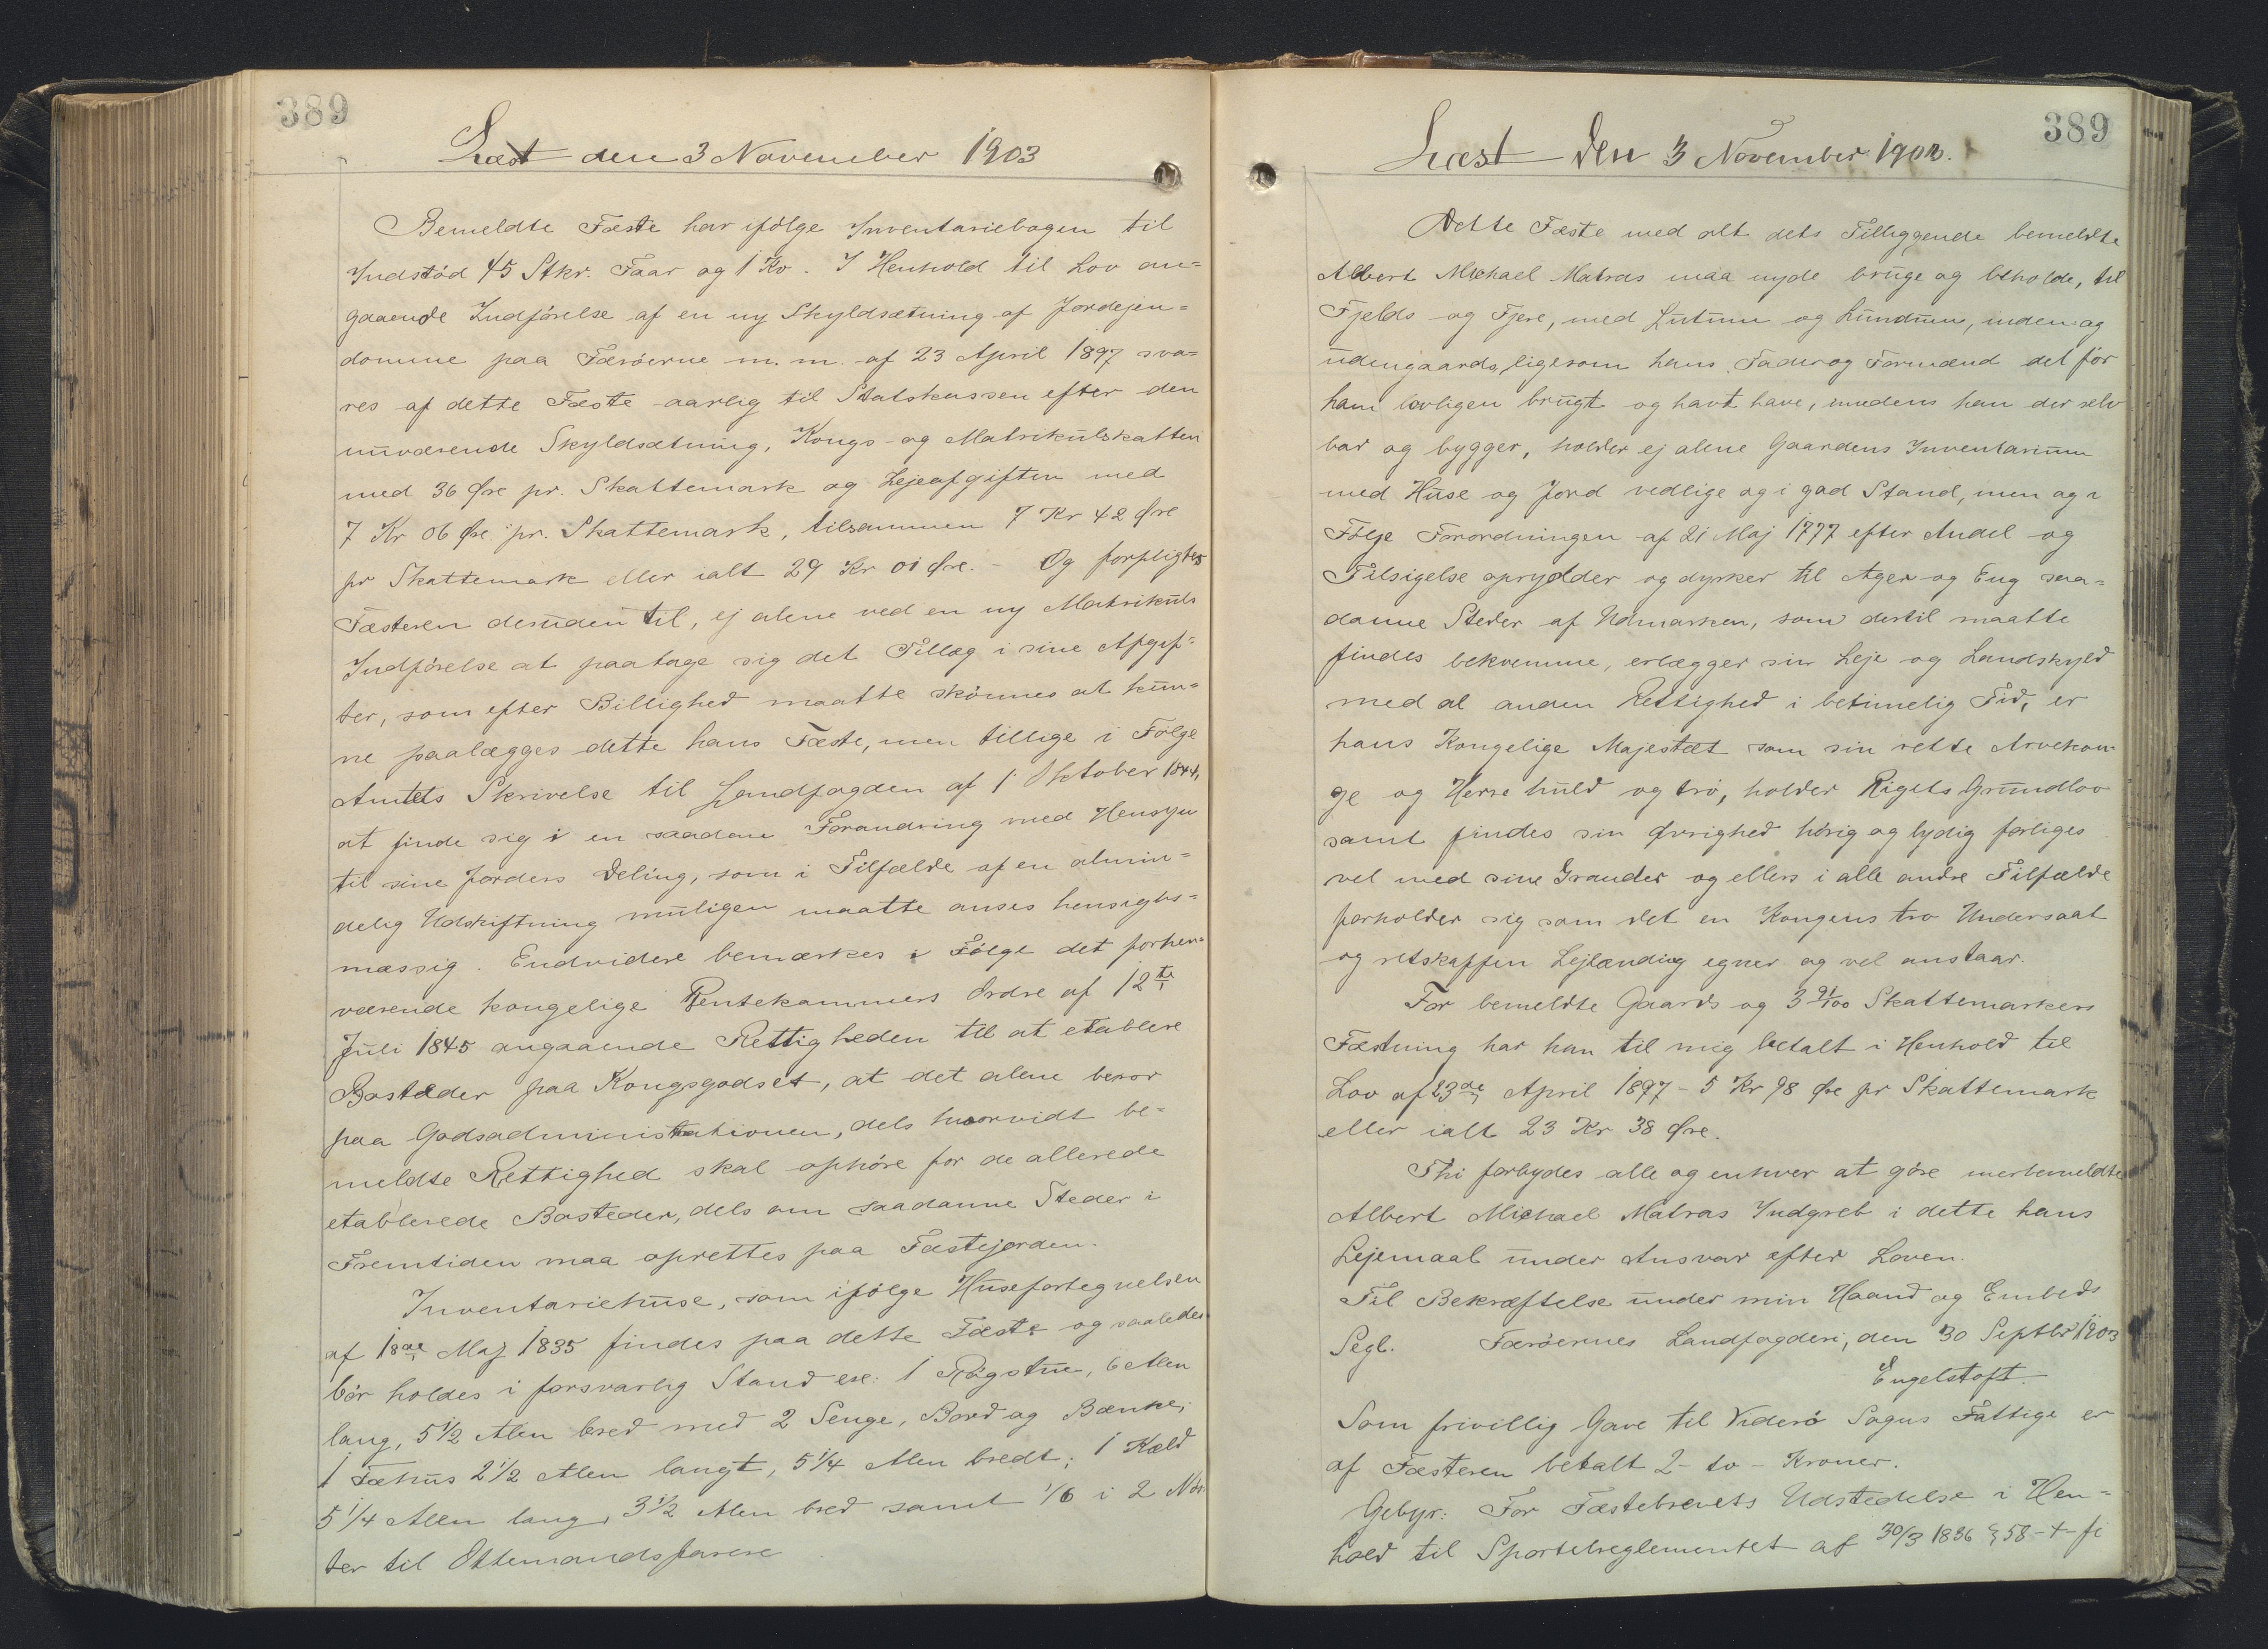 389
Læst den 3 November 1903
Bemeldte Fæste har ifölge Inventariebogen til
Indstöd 45 Stkr. Faar og 1 Ko. I Henhold til Lov an=
gaaende Indförelse af en ny Skyldsætning af Jordejen=
domme paa Færöerne m. m. af 23 April 1897 sva=
res af dette Fæste aarlig til Statskassen efter den
nuværende Skyldsætning, Kongs- og Matrikulskatten
med 36 Øre pr. Skattemark og Lejeafgiften med
7 Kr 06 Øre pr. Skattemark, tilsammen 7 Kr 42 Øre
pr Skattemark eller ialt 29 Kr 01 Øre. - Og forpligtes
Fæsteren desuden til, ej alene ved en ny Matrikuls
Indförelse at paatage sig det Tillæg i sine Afgif=
ter, som efter Billighed maatte skönnes at kun=
ne paalægges dette hans Fæste, men tillige i Fölge
Amtets Skrivelse til Landfogden af 1 Oktober 1844,
at finde sig i en saadan Forandring med Hensyn
til sine Jorders Deling, som i Tilfælde af en almin=
delig Udskiftning muligen maatte anses hensigts=
mæssig. Endvidere bemærkes i Fölge det forhen=
værende kongelige Rentekammers Ordre af 12te
Juli 1845 angaaende Rettigheden til at etablere
Bosteder paa Kongsgodset, at det alene beror
paa Godsadministrationen, dels hvorvidt be=
meldte Rettighed skal ophöre for de allerede
etablerede Bosteder, dels om saadanne Steder i
Fremtiden maa oprettes paa Fæstejorden.
Inventariehuse, som ifölge Husefortegnelsen
af 18de Maj 1835 findes paa dette Fæste og saaledes
bör holdes i forsvarlig Stand ere: 1 Rögstue, 6 Alen
lang, 5 1/2 Alen bred med 2 Senge, Bord og Bænke;
1 Fæhus 2 1/2 Alen langt, 5 1/4 Alen bredt; 1 Kæld
5 1/4 Alen lang, 3 1/2 Alen bred samt 1/6 i 2
ter til Ottemandsfarere
389
Læst den 3 November 1903.
Dette Fæste med alt dets Tilliggende bemeldte
Albert Michael Matras maa nyde bruge og beholde, til
Fjelds og Fjere, med Lutum og Lundum, inden og
udengaards, ligesom hans Fader og Formænd det för
ham lovligen brugt og havt have, imedens han der selv
boer og bygger, holder ej alene Gaardens Inventarium
med Huse og Jord vedlige og i god Stand, men og i
Fölge Forordningen af 21 Maj 1777 efter Andel og
Tilsigelse oprydder og dyrker til Ager og Eng saa=
danne Steder af Udmarken, som dertil maatte
findes bekvemme, erlægger sin Leje og Landskyld
med al anden Rettighed i betimelig Tid, er
hans Kongelige Majestæt som sin rette Arvekon
ge og Herre huld og tro, holder Rigets Grundlov
samt findes sin Øvrighed hörig og lydig forliges
vel med sine Grander og ellers i alle andre Tilfælde
forholder sig som det en Kongens tro Undersaat
og retskaffen Lejlænding egner og vel anstaar.
For bemeldte Gaards og 3 91/100 Skattemarkers
Fæstning har han til mig betalt i Henhold til
Lov af 23de April 1897 - 5 Kr 98 Øre pr Skattemark
eller ialt 23 Kr 38 Øre.
Thi forbydes alle og enhver at göre merbemeldte
Albert Michael Matras Indgreb i dette hans
Lejemaal under Ansvar efter Loven.
Til Bekræftelse under min Haand og Embeds
Segl. Færöernes Landfogderi, den 30 Septbr 1903
Engelstoft.
Som frivillig Gave til Viderö Sogns Fattige er
af Fæsteren betalt 2 - to - Kroner.
Gebyr: For Fæstebrevets Udstedelse i Hen=
hold til Sportelreglementet af 30/3 1836 § 58 - 4 - fi